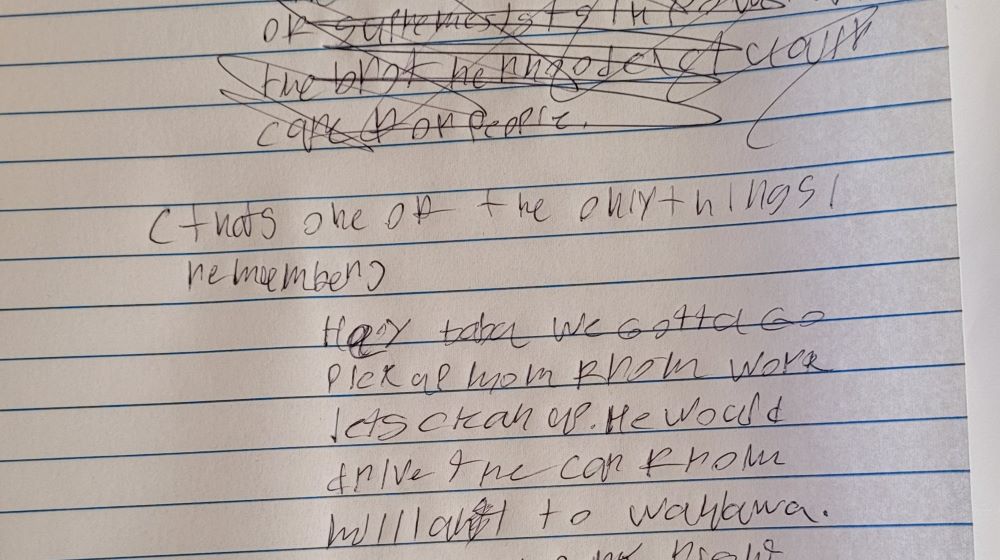 or supremests in
the br
care for people.
(thats one of the only things I
remember)
Hey taba we gotta go
pick up mom from work
lets clean up. He would
drive the car from
to wahiawa.